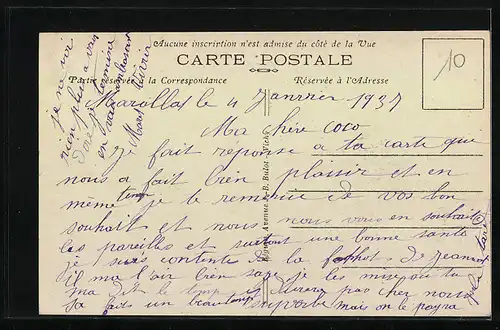 Aucune inscription n'est admise du côté de la Vue
CARTE POSTALE
Partie réservée à la Correspondance
Réservée à l'Adresse
10
Marollas le 4 Janvrier 1937
Ma chère Coco
Je fait reponse a ta carte qui
nous a fait bien plaisir et en
même temp je le remercie de vos bon
souhait et nous nous vous en souhaite
les pareilles et surtout une bonne santé
je suis contente de la fothot de jeannot
il ma l'air bien sage je les mise ou tu
ma dit le temp is durera pas cher nous
sa fait un beau temp superbe mais on le payra
je ne voi
rien plus a vous
dire je termine
en vous embrasant